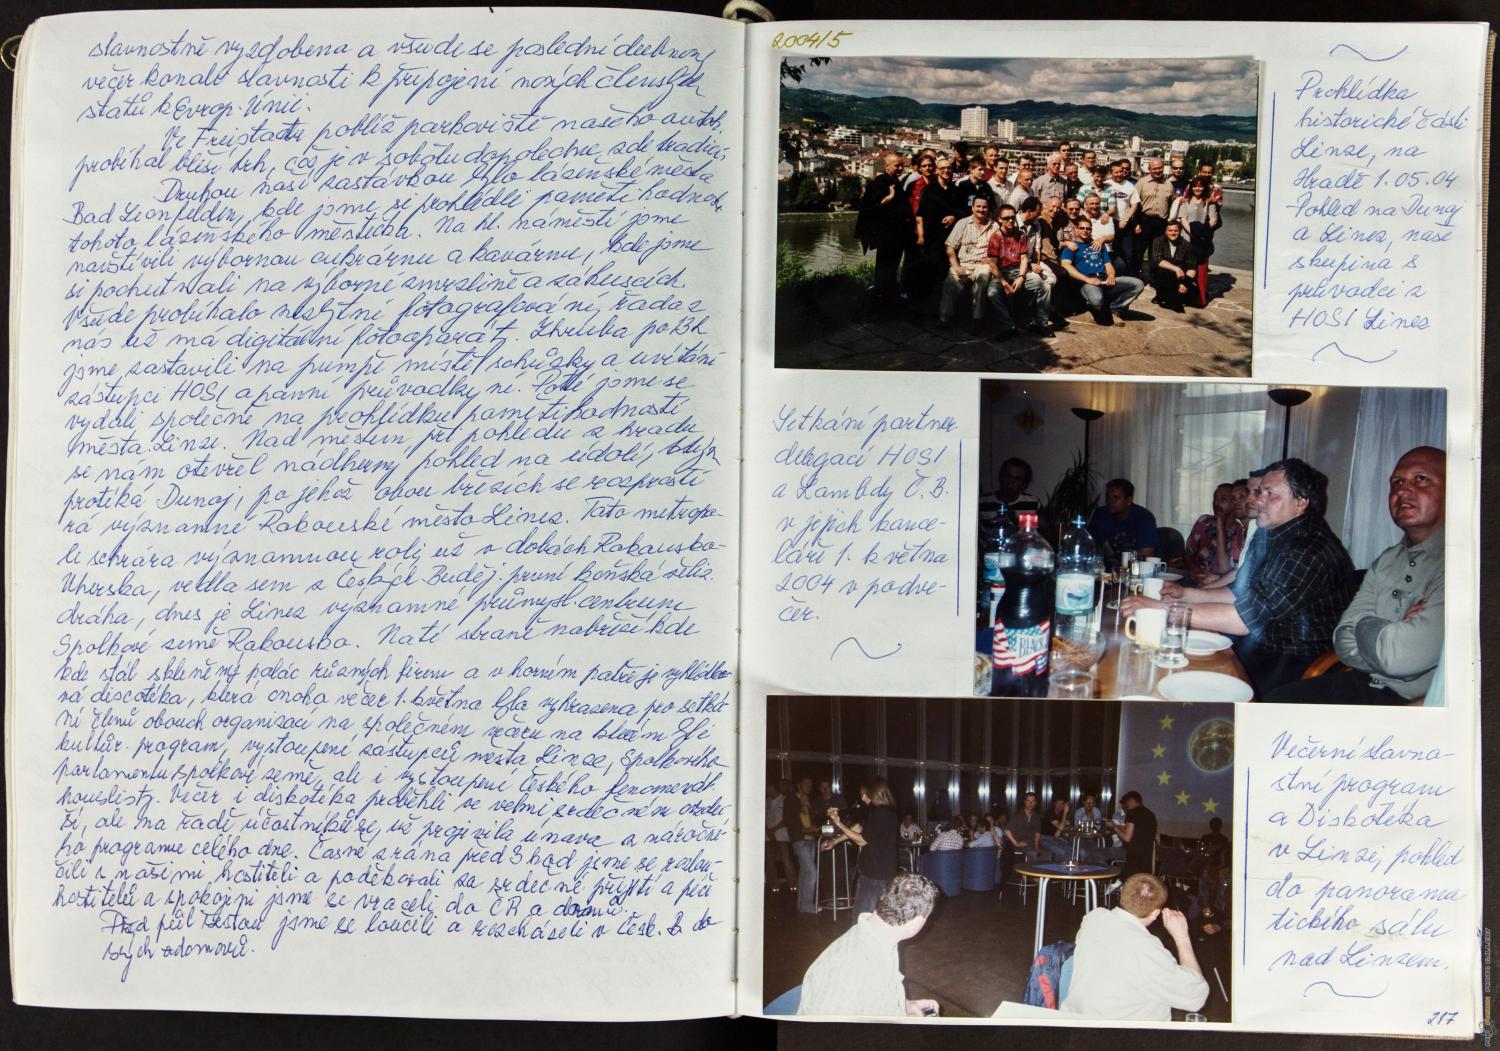 slavnostně vyzdobena a všude se poslední dubnový
večer konaly slavnosti k připojení nových členských
států k Evrop. Unii.
Ve Freistadtu poblíž parkoviště našeho autob.
probíhal bleší trh, což je v sobotu dopoledne zde tradicí.
Druhou naší zastávkou bylo lázeňské město
Bad Leonfelden, kde jsme si prohlédli pamětihodnosti
tohoto lázeňského městečka. Na hl. náměstí jsme
navštívili výbornou cukrárnu a kavárnu, kde jsme
si pochutnali na výborné zmrzlině a zákuscích.
Všude probíhalo nezbytné fotografování, řada z
nás už má digitální fotoaparát. Zhruba po 13h
jsme zastavili na pumpě místě schůzky a uvítání
zástupci HOSI a paní průvodkyní. Poté jsme se
vydali společně na prohlídku pamětihodností
města Linze. Nad městem při pohledu z hradu
se nám otevřel nádherný pohled na údolí, kdy
protéká Dunaj, po jehož obou březích se rozprostí
rá významné Rakouské město Linez. Tato metropo-
le sehrála významnou roli už v dobách Rakousko-
Uherska, vedla sem z Českých Buděj. první koňská želez.
dráha, dnes je Linez významné průmysl. centrum
Spolkové země Rakousko. Na té straně nábřeží kde
kde stál skleněný palác různých firem a v horním patře je vyhlídko
vá discotéka, která onoho večer 1. května byla vyhrazena pro setká
ní členů obouch organizací na společném večeru na kterém byl
kultůr. program, vystoupení zástupců města Linze, Spolkového
parlamentu spolkové země, ale i vystoupení českého fenomenál.
houslisty. Večer i diskotéka proběhli ve velmi srdečném ovzdu
ší, ale na řadě účastníků se už projevila únava z náročné
ho programu celého dne. Časně z rána před 3 hod jsme se rozlou-
čili s našimi hostiteli a poděkovali za srdečné přijetí a péči
hostitelů a spokojeni jsme se vraceli do ČR a domů.
Před půl šestou jsme se loučili a rozcházeli v Česk. B. do
svých domovů.
2004/5
Prohlídka
historické části
Linze, na
Hradě 1.05.04
Pohled na Dunaj
a Linez, naše
skupina s
průvodci z
HOSI Linez
Setkání partner.
delegací HOSI
a Lambdy Č.B.
v jejich kance-
láři 1. května
2004 v podve-
čer.
BLACK
Večerní slavno-
stní program
a Diskotéka
v Linzi, pohled
do panorama
tického sálu
nad Linzem.
287